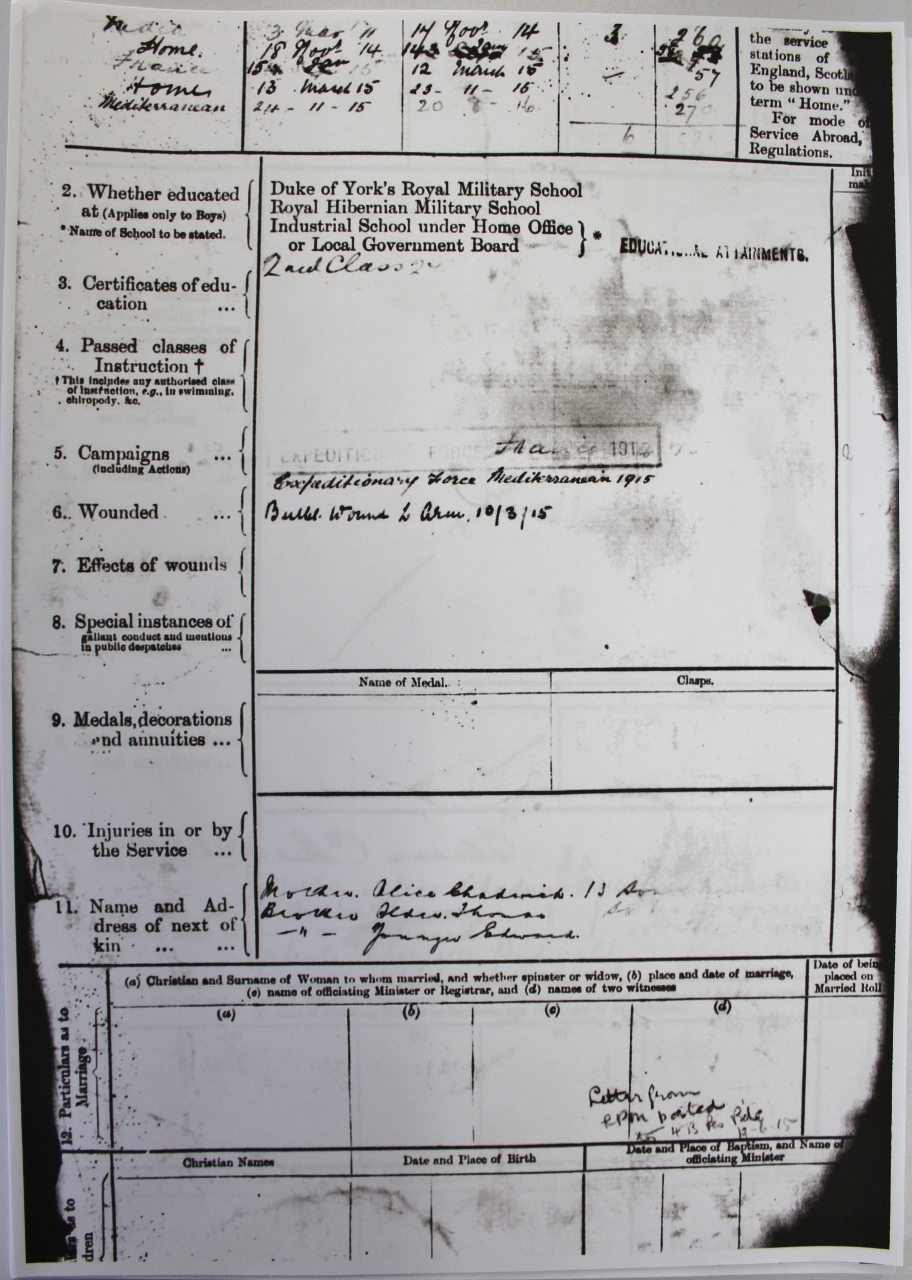 3 11 14 Nov. 14 3 260 the service
Home. 18 Nov. 14 stations of
France 15 12 March 15 57 England,
Home 13 March 15 23-11-15 256 to be shown
Mediterranean 24-11-15 20 8 16 270 term "Home."
For mode
6 Service Abroad,
Regulations.
2. Whether educated
at (Applies only to Boys)
*Name of School to be stated.
Duke of York's Royal Military School
Royal Hibernian Military School
Industrial School under Home Office
or Local Government Board
} *
EDUCATIONAL ATTAINMENTS.
3. Certificates of edu-
cation ...
2nd Class
4. Passed classes of
Instruction †
†This includes any authorised class
of instruction, e.g., in swimming,
chiropody, &c.
5. Campaigns ...
(including Actions)
EXPEDITIONARY FORCE France 1914
Expeditionary Force Mediterranean 1915
6. Wounded ...
Bullet Wound L Arm. 10/3/15
7. Effects of wounds
8. Special instances of
gallant conduct and mentions
in public despatches ...
9. Medals, decorations
and annuities ...
Name of Medal. Clasps.
10. Injuries in or by
the Service ...
11. Name and Ad-
dress of next of
kin ... ...
Mother. Alice Chadwick. 13
Brother Elder. Thomas
-"- Younger Edward.
12. Particulars as to
Marriage
(a) Christian and Surname of Woman to whom married, and whether spinster or widow, (b) place and date of marriage,
(c) name of officiating Minister or Registrar, and (d) names of two witnesses
Date of being
placed on
Married Roll
(a) (b) (c) (d)
Letter from
posted
15
Christian Names Date and Place of Birth Date and Place of Baptism, and Name of
officiating Minister
as to